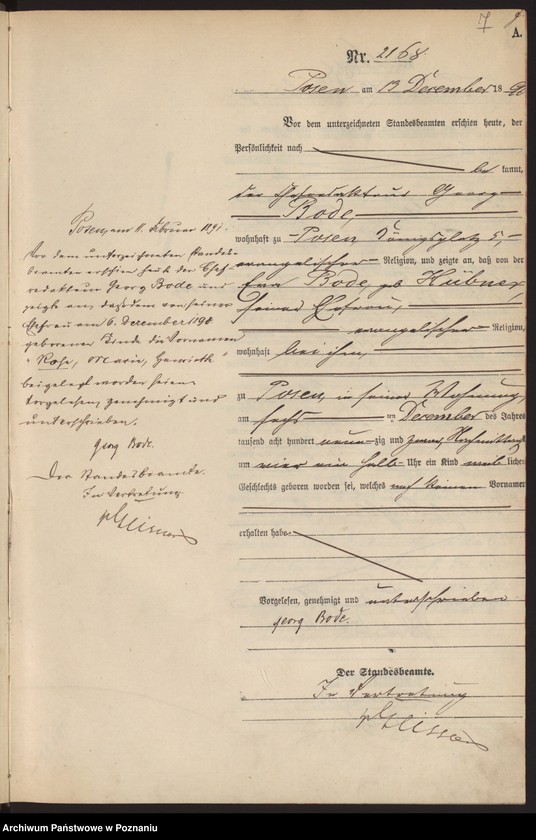 7
A.
Nr. 2168
Posen am 13 December 1890
Vor dem unterzeichneten Standesbeamten erschien heute, der
Persönlichkeit nach
be kannt,
der Chefredakteur Georg
Bode,
wohnhaft zu Posen Königsplatz 5,
evangelischer Religion, und zeigte an, daß von der
Bode geb Hübner,
seiner Ehefrau,
evangelischer Religion,
wohnhaft bei ihm,
zu Posen, in seiner Wohnung,
am sechs ten December des Jahres
tausend acht hundert neun zig und zwar, Nachmittags
um vier ein halb Uhr ein Kind weib lichen
Geschlechts geboren worden sei, welches noch keinen Vornamen
erhalten habe
Vorgelesen, genehmigt und unterschrieben
Georg Bode.
Der Standesbeamte.
In Vertretung
Posen, am 11. Februar 1891.
Vor dem unterzeichneten Standes-
beamten erschien heut der Chef
redakteur Georg Bode und
zeigte an, daß dem von seiner
Ehefrau am 6. December 1890
geborenen Kinde die Vornamen
Rose, Marie, Henriette
beigelegt worden seien
Vorgelesen, genehmigt und
unterschrieben.
Georg Bode.
Der Standesbeamte.
In Vertretung
Archiwum Państwowe w Poznaniu